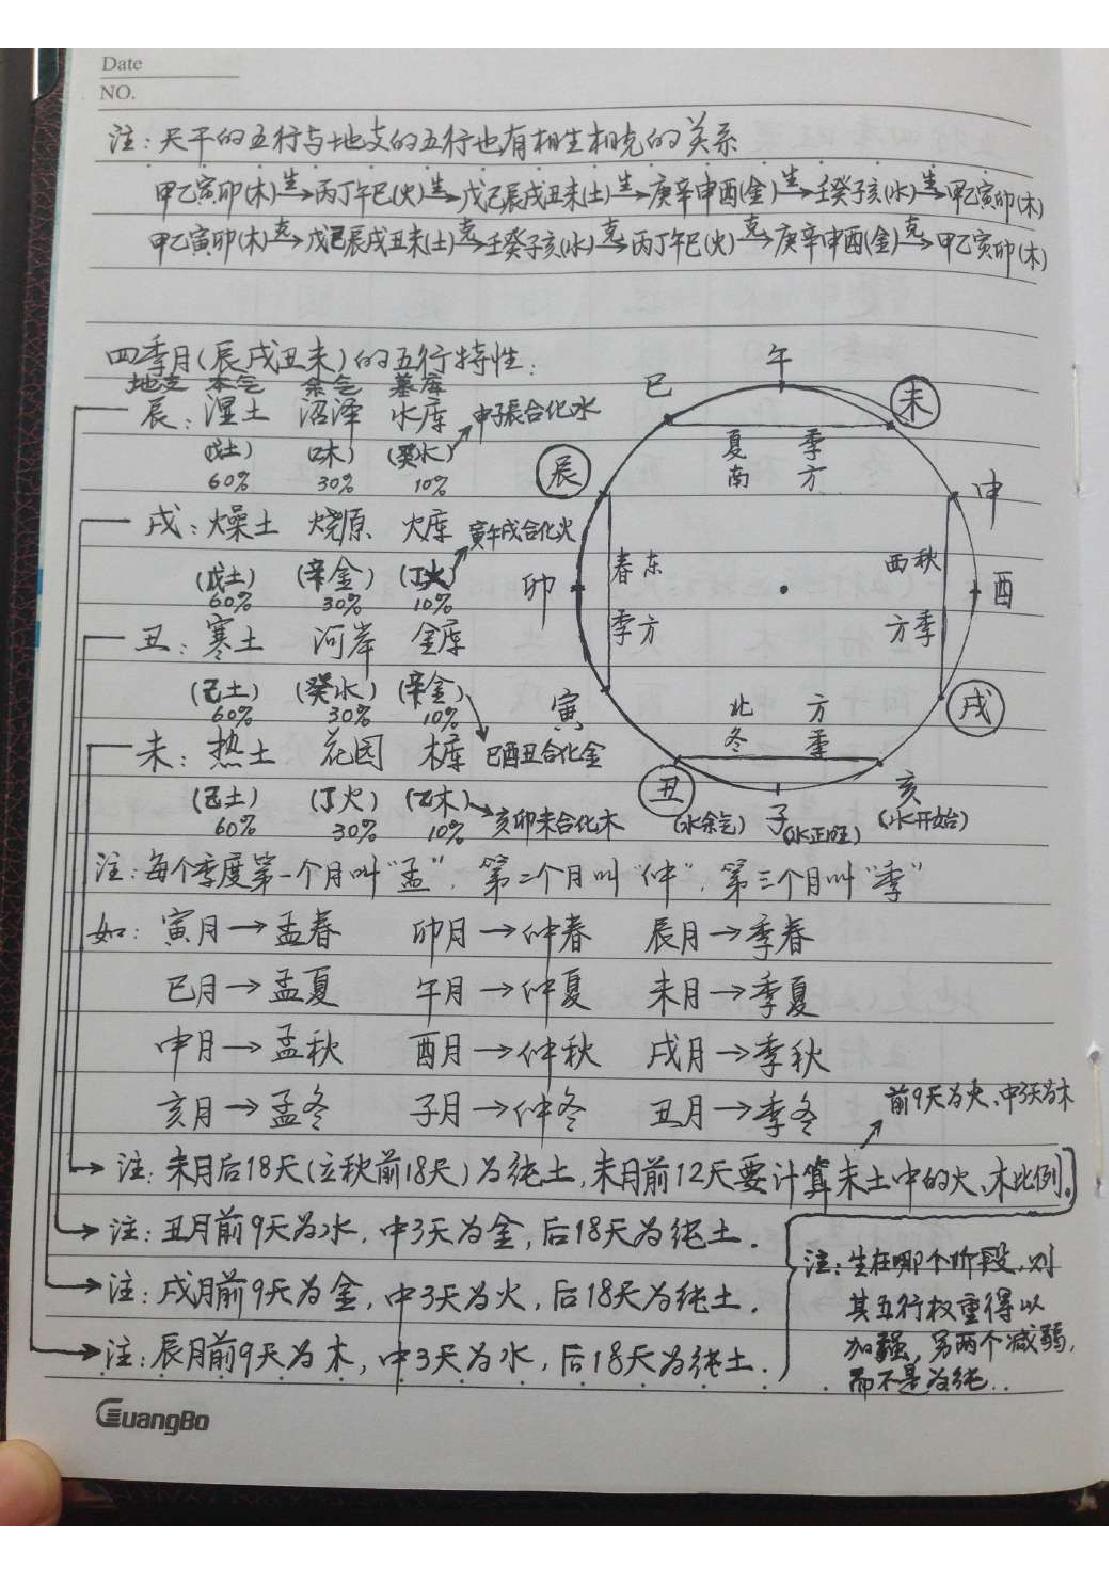 Date
NO.
注：天干的五行与地支的五行也有相生相克的关系
甲乙寅卯(木)生→丙丁午巳(火)生→戊己辰戌丑未(土)生→庚辛申酉(金)生→壬癸子亥(水)生→甲乙寅卯(木)
甲乙寅卯(木)克→戊己辰戌丑未(土)克→壬癸子亥(水)克→丙丁午巳(火)克→庚辛申酉(金)克→甲乙寅卯(木)
四季月(辰戌丑未)的五行特性：
地支 本气 余气 墓库
辰：湿土 沼泽 水库 申子辰合化水
(戊土) (乙木) (癸水)
60% 30% 10%
戌：燥土 烧原 火库 寅午戌合化火
(戊土) (辛金) (丁火)
60% 30% 10%
丑：寒土 河岸 金库
(己土) (癸水) (辛金)
60% 30% 10%
未：热土 花园 木库 巳酉丑合化金
(己土) (丁火) (乙木)→亥卯未合化木
60% 30% 10%
午
巳 未
夏 季
南 方
辰 申
春 东 西 秋
卯 酉
季 方 方 季
寅 戌
北 方
冬 季
丑 亥
(水余气) 子(水正旺) (水开始)
注：每个季度第一个月叫“孟”，第二个月叫“仲”，第三个月叫“季”
如：寅月→孟春 卯月→仲春 辰月→季春
巳月→孟夏 午月→仲夏 未月→季夏
申月→孟秋 酉月→仲秋 戌月→季秋
亥月→孟冬 子月→仲冬 丑月→季冬
前9天为火、中3天为木
→注：未月后18天(立秋前18天)为纯土，未月前12天要计算未土中的火、木比例。
→注：丑月前9天为水，中3天为金，后18天为纯土．
→注：戌月前9天为金，中3天为火，后18天为纯土．
→注：辰月前9天为木，中3天为水，后18天为纯土．
注：生在哪个阶段，则
其五行权重得以
加强，另两个减弱，
而不是为纯..
GuangBo